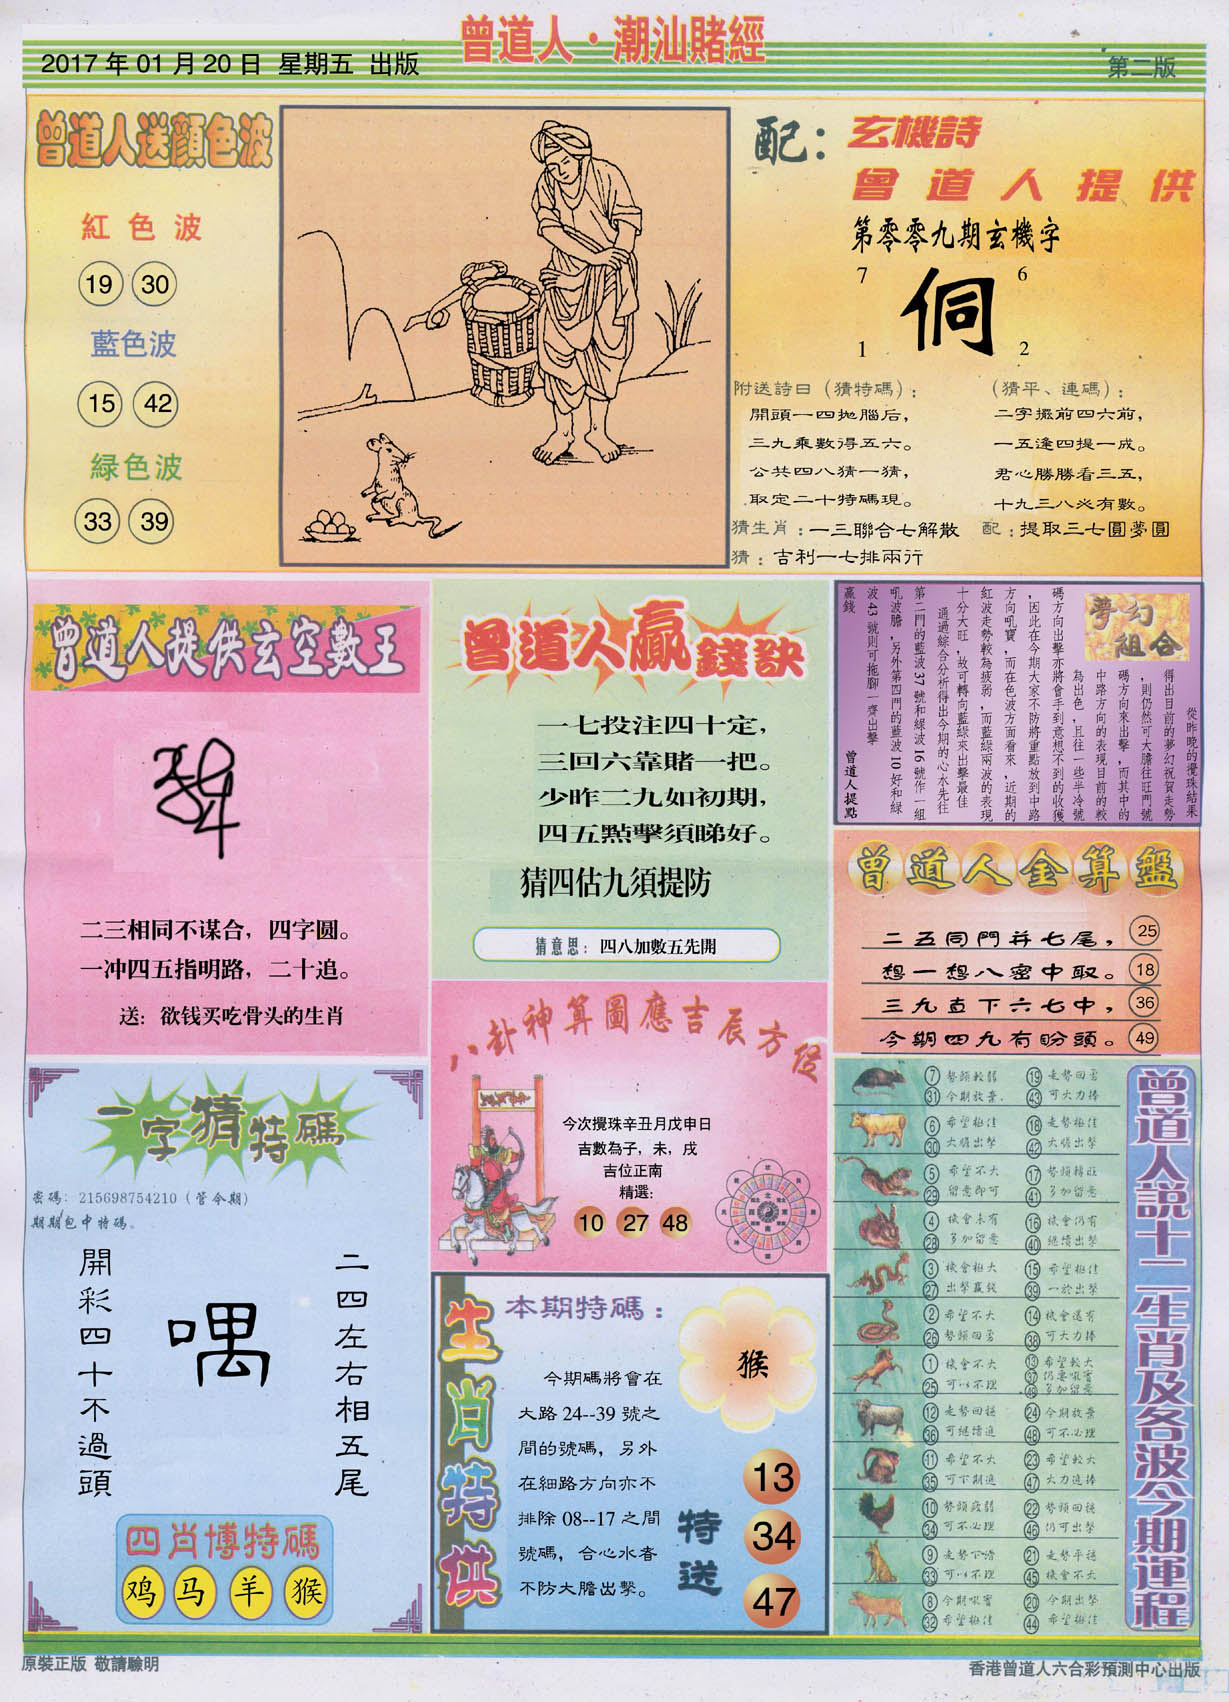 曾道人·潮汕賭經
2017年01月20日 星期五 出版
第二版
曾道人送顏色波
紅色波
19 30
藍色波
15 42
綠色波
33 39
配：玄機詩
曾道人提供
第零零九期玄機字
7 6
侗
1 2
附送詩曰（猜特碼）：
開頭一四拋腦后，
三九乘數得五六。
公共四八猜一猜，
取定二十特碼現。
（猜平、連碼）：
二字攤前四六前，
一五逢四提一成。
君心勝勝看三五，
十九三八必有數。
猜生肖：一三聯合七解散 配：提取三七圓夢圓
猜：吉利一七排兩行
曾道人提供玄空數王
二三相同不谋合，四字圆。
一冲四五指明路，二十追。
送：欲钱买吃骨头的生肖
曾道人贏錢訣
一七投注四十定，
三回六靠賭一把。
少昨二九如初期，
四五點擊須睇好。
猜四估九須提防
猜意思：四八加數五先開
夢幻組合
從昨晚的攪珠結果
得出目前的夢幻祝賀走勢
，則仍然可大膽往旺門號
碼方向來出擊，而其中的
中路方向的表現目前的較
為出色，且往一些半冷號
碼方向出擊亦將會手到意想不到的收獲
，因此在今期大家不防將重點放到中路
方向吼寶，而在色波方面看來，近期的
紅波走勢較為疲弱，而藍綠兩波的表現
十分大旺，故可轉向藍綠來出擊最佳
通過綜合分析得出今期的心水先往
第二門的藍波37號和綠波16號作一組
吼波膽，另外第四門的藍波10好和綠
波43號則可拖腳一齊出擊
贏錢 曾道人提點
曾道人金算盤
二五同門并七尾， 25
想一想八密中取。 18
三九直下六七中， 36
今期四九有盼頭。 49
八卦神算圖應吉辰方位
今次攪珠辛丑月戊申日
吉數為子，未，戌
吉位正南
精選:
10 27 48
一字猜特碼
密碼：215698754210（管令期）
期期包中特碼。
二四左右相五尾
喁
開彩四十不過頭
四肖博特碼
鸡 马 羊 猴
生肖特供
本期特碼：
猴
今期碼將會在
大路24--39號之
間的號碼，另外
在細路方向亦不
排除08--17之間
號碼，合心水者
不防大膽出擊。
特送
13
34
47
曾道人説十二生肖及各波今期運程
7 勢頭較弱 19 走勢回勇
31 今期放棄 43 可大力捧
6 希望極佳 18 走勢極佳
30 大膽出擊 42 大膽出擊
5 希望不大 17 勢頭轉旺
29 留意即可 41 多加留意
4 機會未有 16 機會仍有
28 多加留意 40 繼續出擊
3 機會極大 15 希望極佳
27 出擊贏錢 39 一於出擊
2 希望不大 14 機會還有
26 勢頭回勇 38 可大力捧
1 機會不大 13 希望較大
25 可以不理 37 仍要吸實
49 多加留意
12 走勢回穩 24 今期放棄
36 可繼續追 48 可不必理
11 希望不大 23 希望較大
35 可下期追 47 大力追捧
10 勢頭疲弱 22 勢頭回穩
34 可不必理 46 仍可出擊
9 走勢下滑 21 走勢平穩
33 可以不理 45 機會不大
8 今期吸實 20 今期出擊
32 希望極佳 44 希望極佳
原裝正版 敬請驗明
香港曾道人六合彩預測中心出版